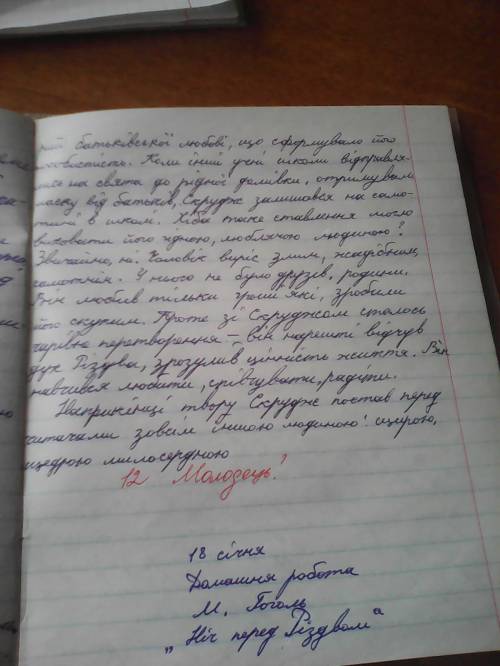 батьківської любові, що сформувало його
особистість. Коли інші учні школи відправля-
лися на свята до рідної домівки, отримували
ласку від батьків, Скрудж залишався на само-
тині в школі. Хіба таке ставлення могло
виховати його гідною, люблячою людиною?
Звичайно, ні. Чоловік виріс злим, жадібним,
самотнім. У нього не було друзів, родини.
Він любив тільки гроші які, зробили
його скупим. Проте зі Скруджом сталось
чарівне перетворення – він нарешті відчув
дух Різдва, зрозумів цінність життя. Він
навчився любити, співчувати, радіти.
Наприкінці твору Скрудж постав перед
читачами зовсім іншою людиною: щирою,
щедрою милосердною
12 Молодець!
18 січня
Домашня робота
М. Гоголь
„Ніч перед Різдвом"